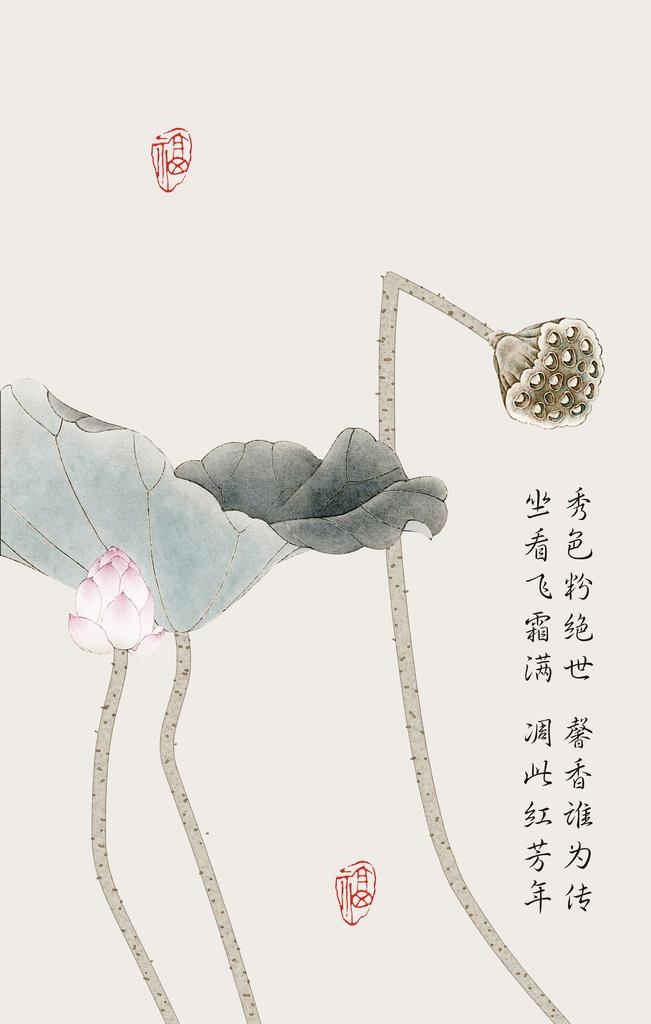 福
秀色粉绝世 馨香谁为传
坐看飞霜满 凋此红芳年
福